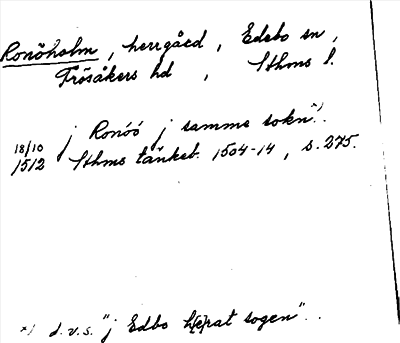 Ronöholm, herrgård, Edebo sn,
Frösåkers hd, Sthms l.
18/10 1512 j Ronöö j samme sokn x).
Sthms tänkeb. 1504-14, s. 275.
x) d.v.s. "j Edbo h(e)pat sogen".